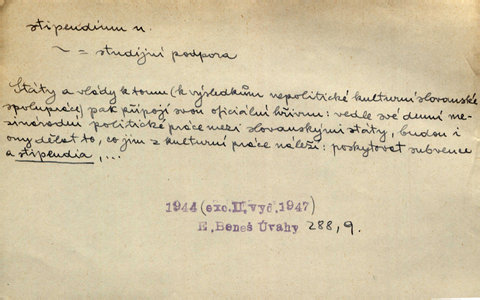 stipendium n.
~ = studijní podpora
Státy a vlády k tomu (k výsledkům nepolitické kulturní slovanské
spolupráce) pak připojí svou oficiální hřivnu: vedle své denní me-
zinárodní politické práce mezi slovanskými státy, budou i
ony dělat to, co jim z kulturní práce náleží: poskytovat subvence
a stipendia, ...
1944 (exc. II, vyd. 1947)
E. Beneš Úvahy 288, 9.